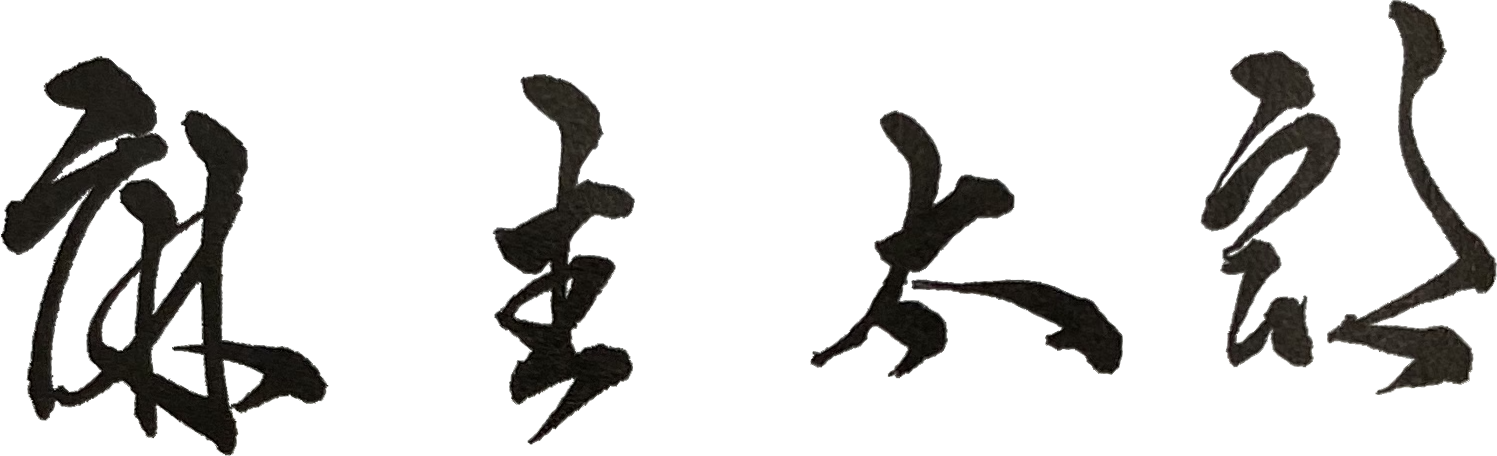 麻生太郎